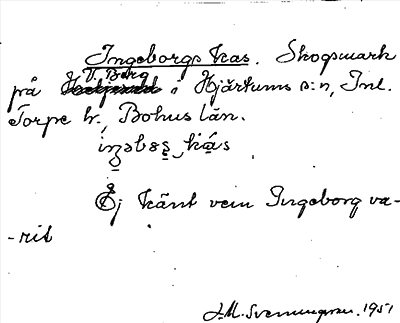 Ingeborgs kas. Skogsmark
V. Berg
på i Hjärtums s:n, Inl.
Torpe h., Bohus län.
kás
Ej känt vem Ingeborg va-
-rit
J.M. Svenningson. 1951